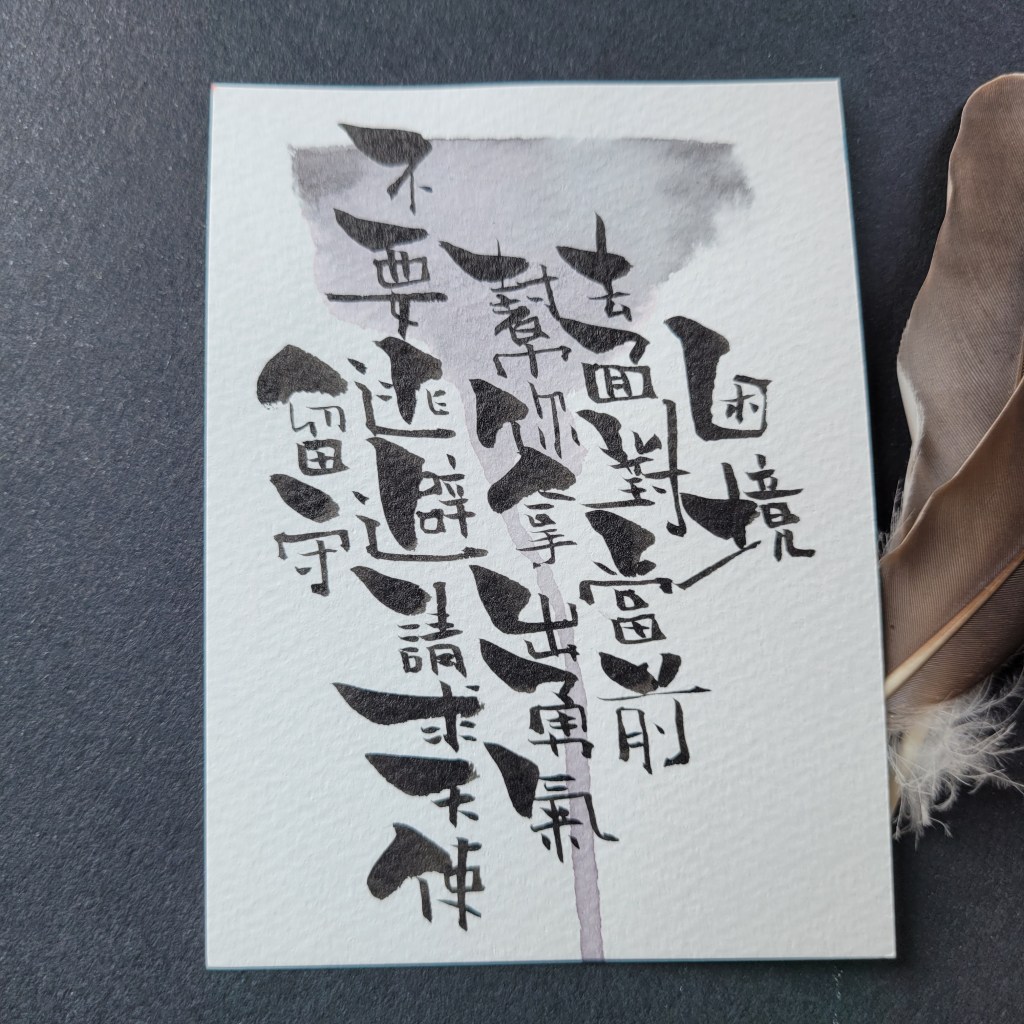 留守
不要逃避請求天使
幫你拿出勇氣
去面對當前
困境